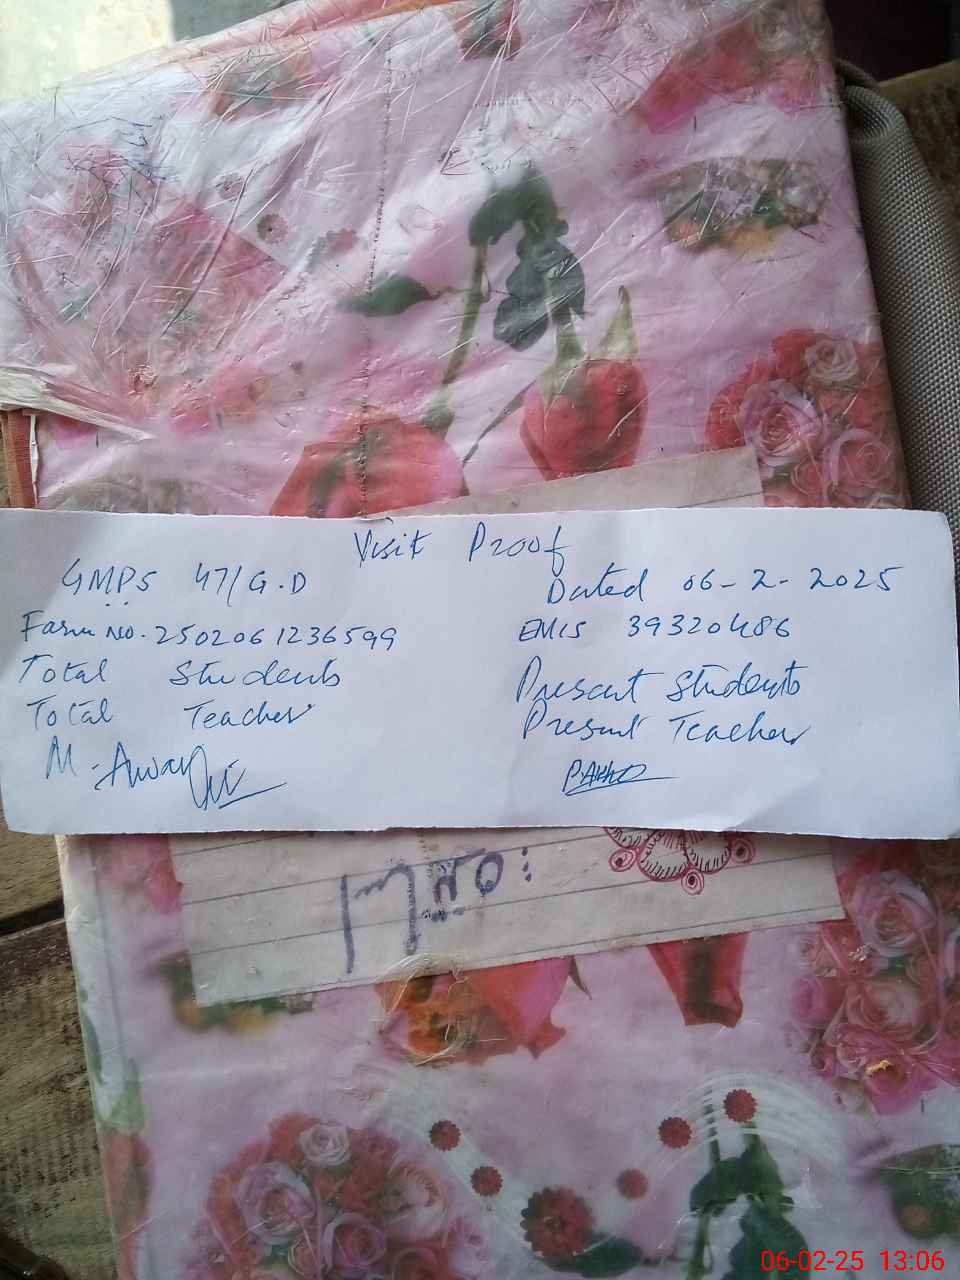 Visit Proof
GMPS 47/G.D
Dated 06-2-2025
Farm No. 2502061236599
EMIS 39320486
Total Students
Present Students
Total Teacher
Present Teacher
M. Awan
06-02-25 13:06